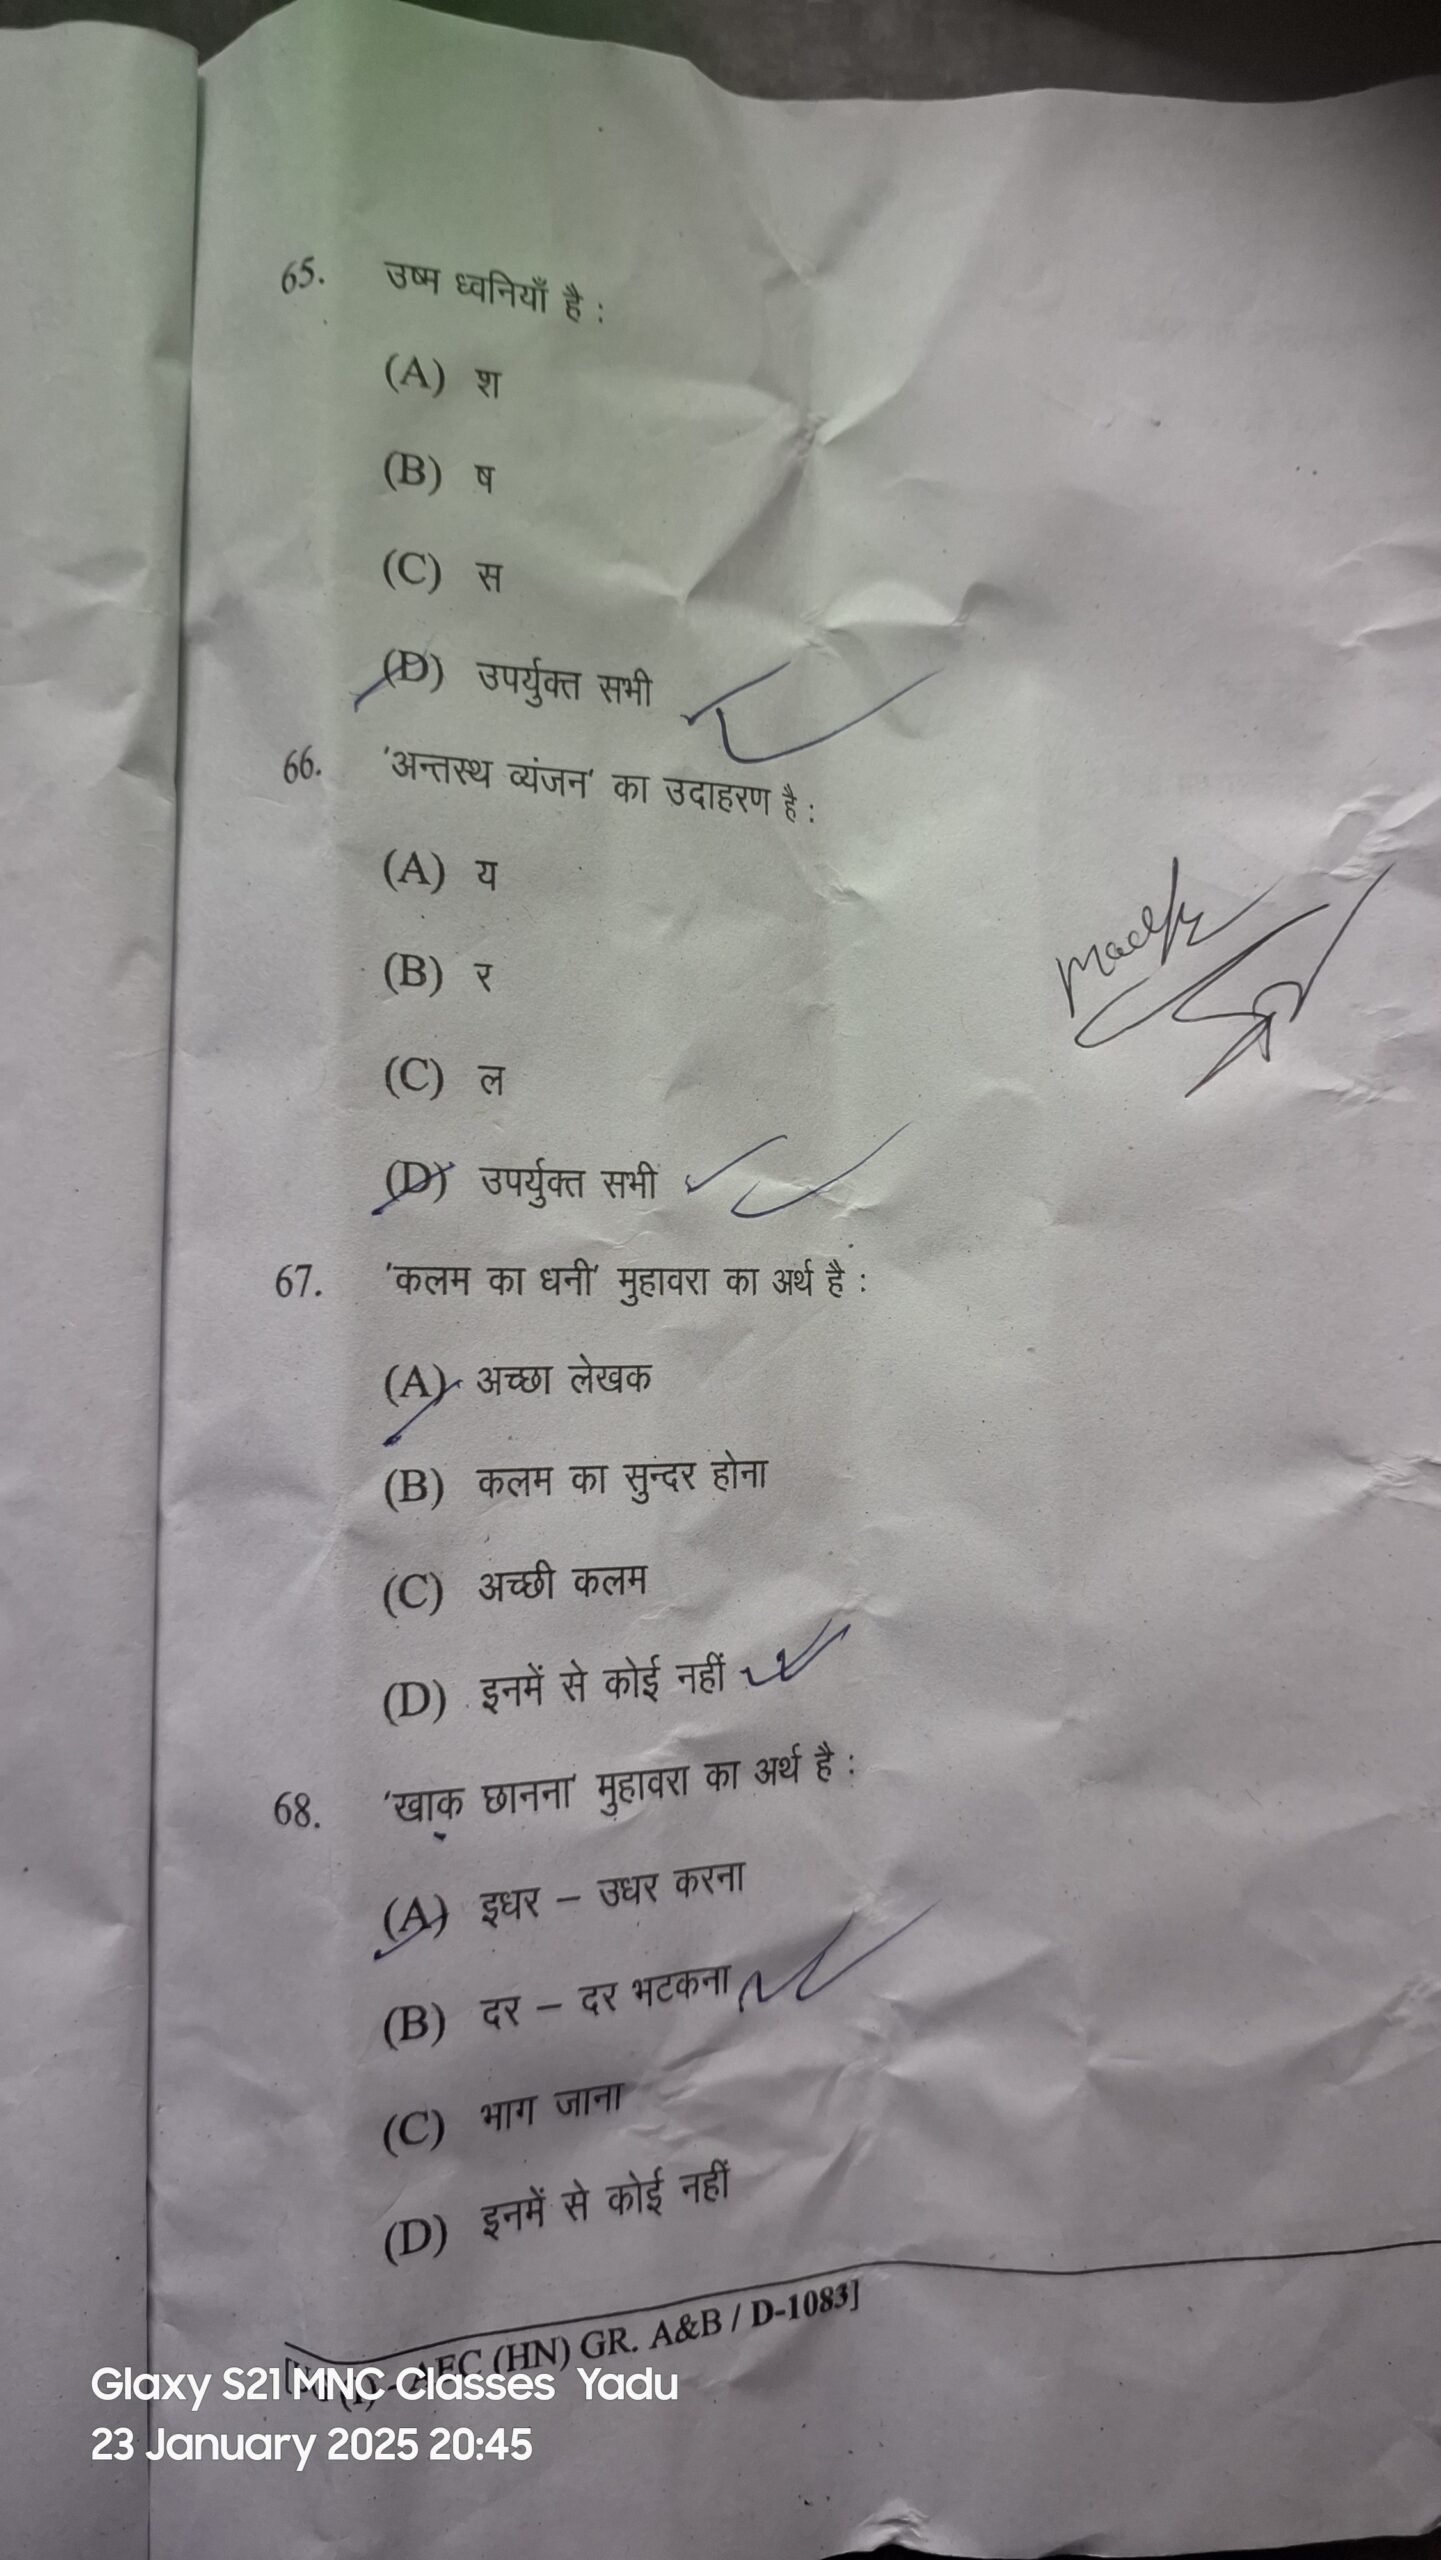 65. उष्म ध्वनियाँ है :
(A) श
(B) ष
(C) स
(D) उपर्युक्त सभी
66. 'अन्तस्थ व्यंजन' का उदाहरण है :
(A) य
(B) र
(C) ल
(D) उपर्युक्त सभी
67. 'कलम का धनी' मुहावरा का अर्थ है :
(A) अच्छा लेखक
(B) कलम का सुन्दर होना
(C) अच्छी कलम
(D) इनमें से कोई नहीं
68. 'खाक छानना' मुहावरा का अर्थ है :
(A) इधर – उधर करना
(B) दर – दर भटकना
(C) भाग जाना
(D) इनमें से कोई नहीं
AEC (HN) GR. A&B / D-1083]
Glaxy S21 MNC Classes Yadu
23 January 2025 20:45